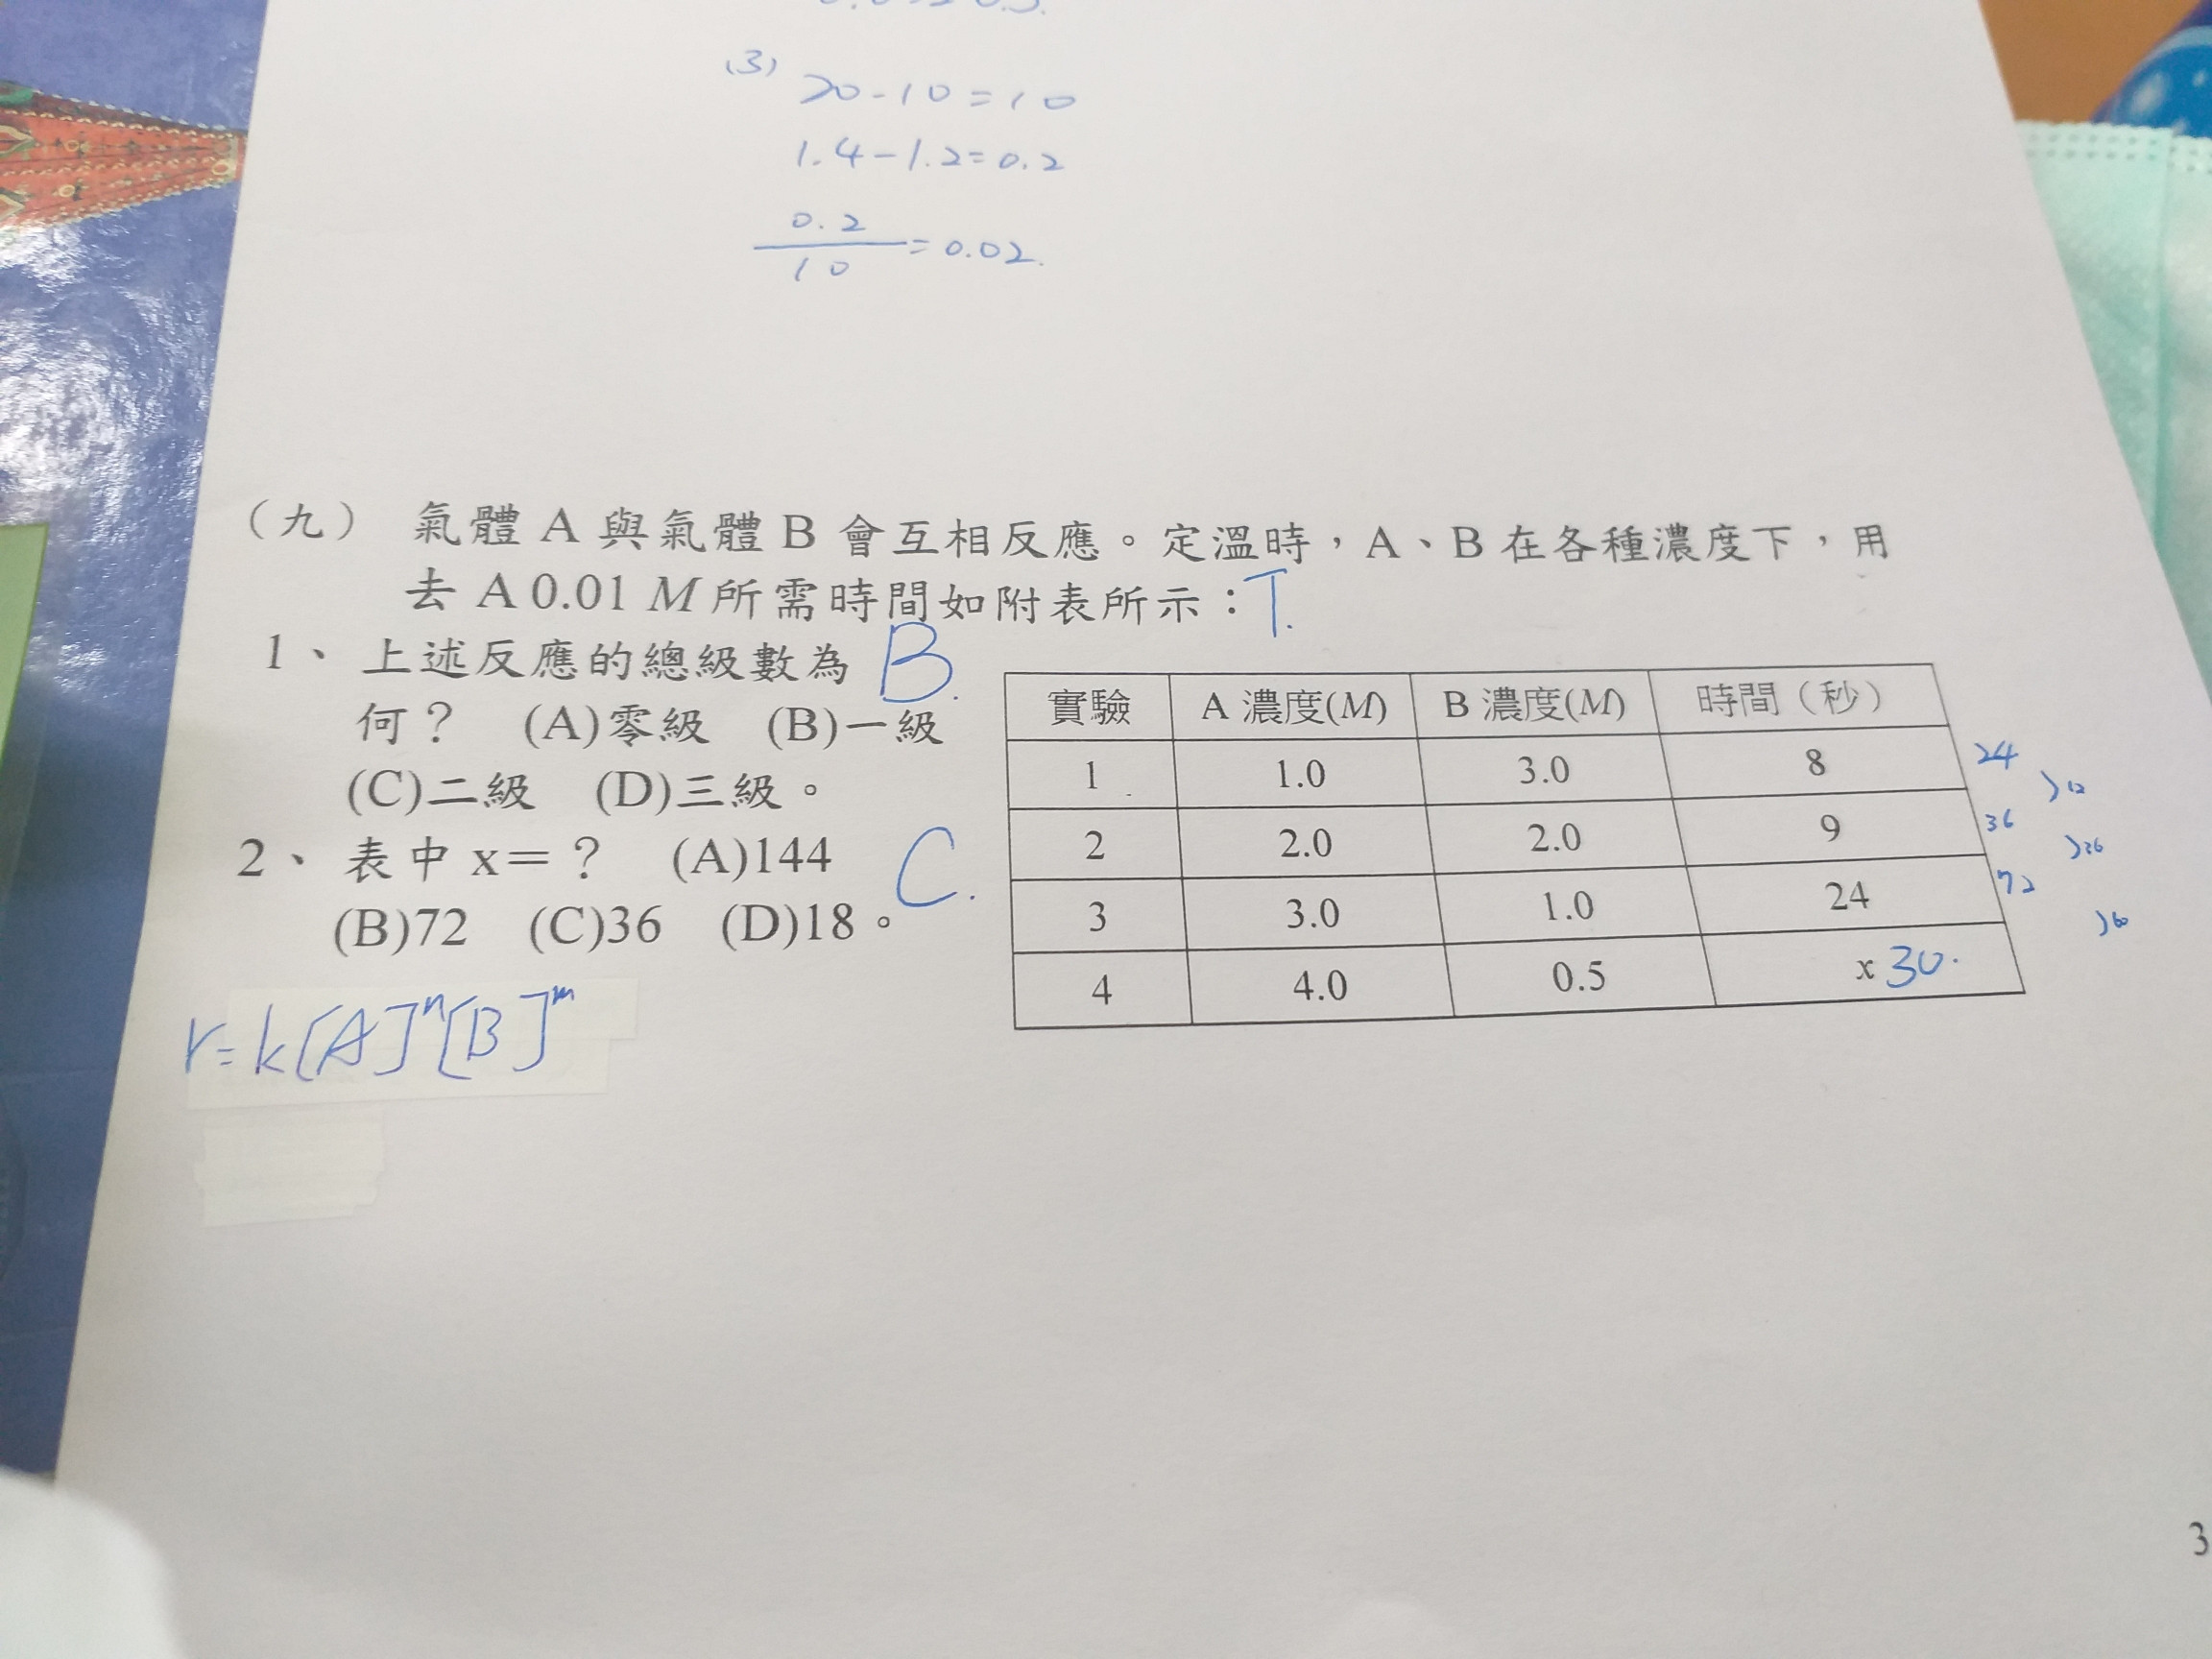 (3) 20-10=10
1.4-1.2=0.2
0.2
10
=0.02.
（九） 氣體 A 與氣體 B 會互相反應。定溫時，A、B 在各種濃度下，用
去 A 0.01 M 所需時間如附表所示：T.
1、 上述反應的總級數為 B.
何？ (A)零級 (B)一級
(C)二級 (D)三級。
2、 表中 x＝？ (A)144 C.
(B)72 (C)36 (D)18。
r=k[A]ⁿ[B]ᵐ
實驗 A 濃度(M) B 濃度(M) 時間（秒）
1 1.0 3.0 8 24
2 2.0 2.0 9 36
3 3.0 1.0 24 72
4 4.0 0.5 x 30.
3